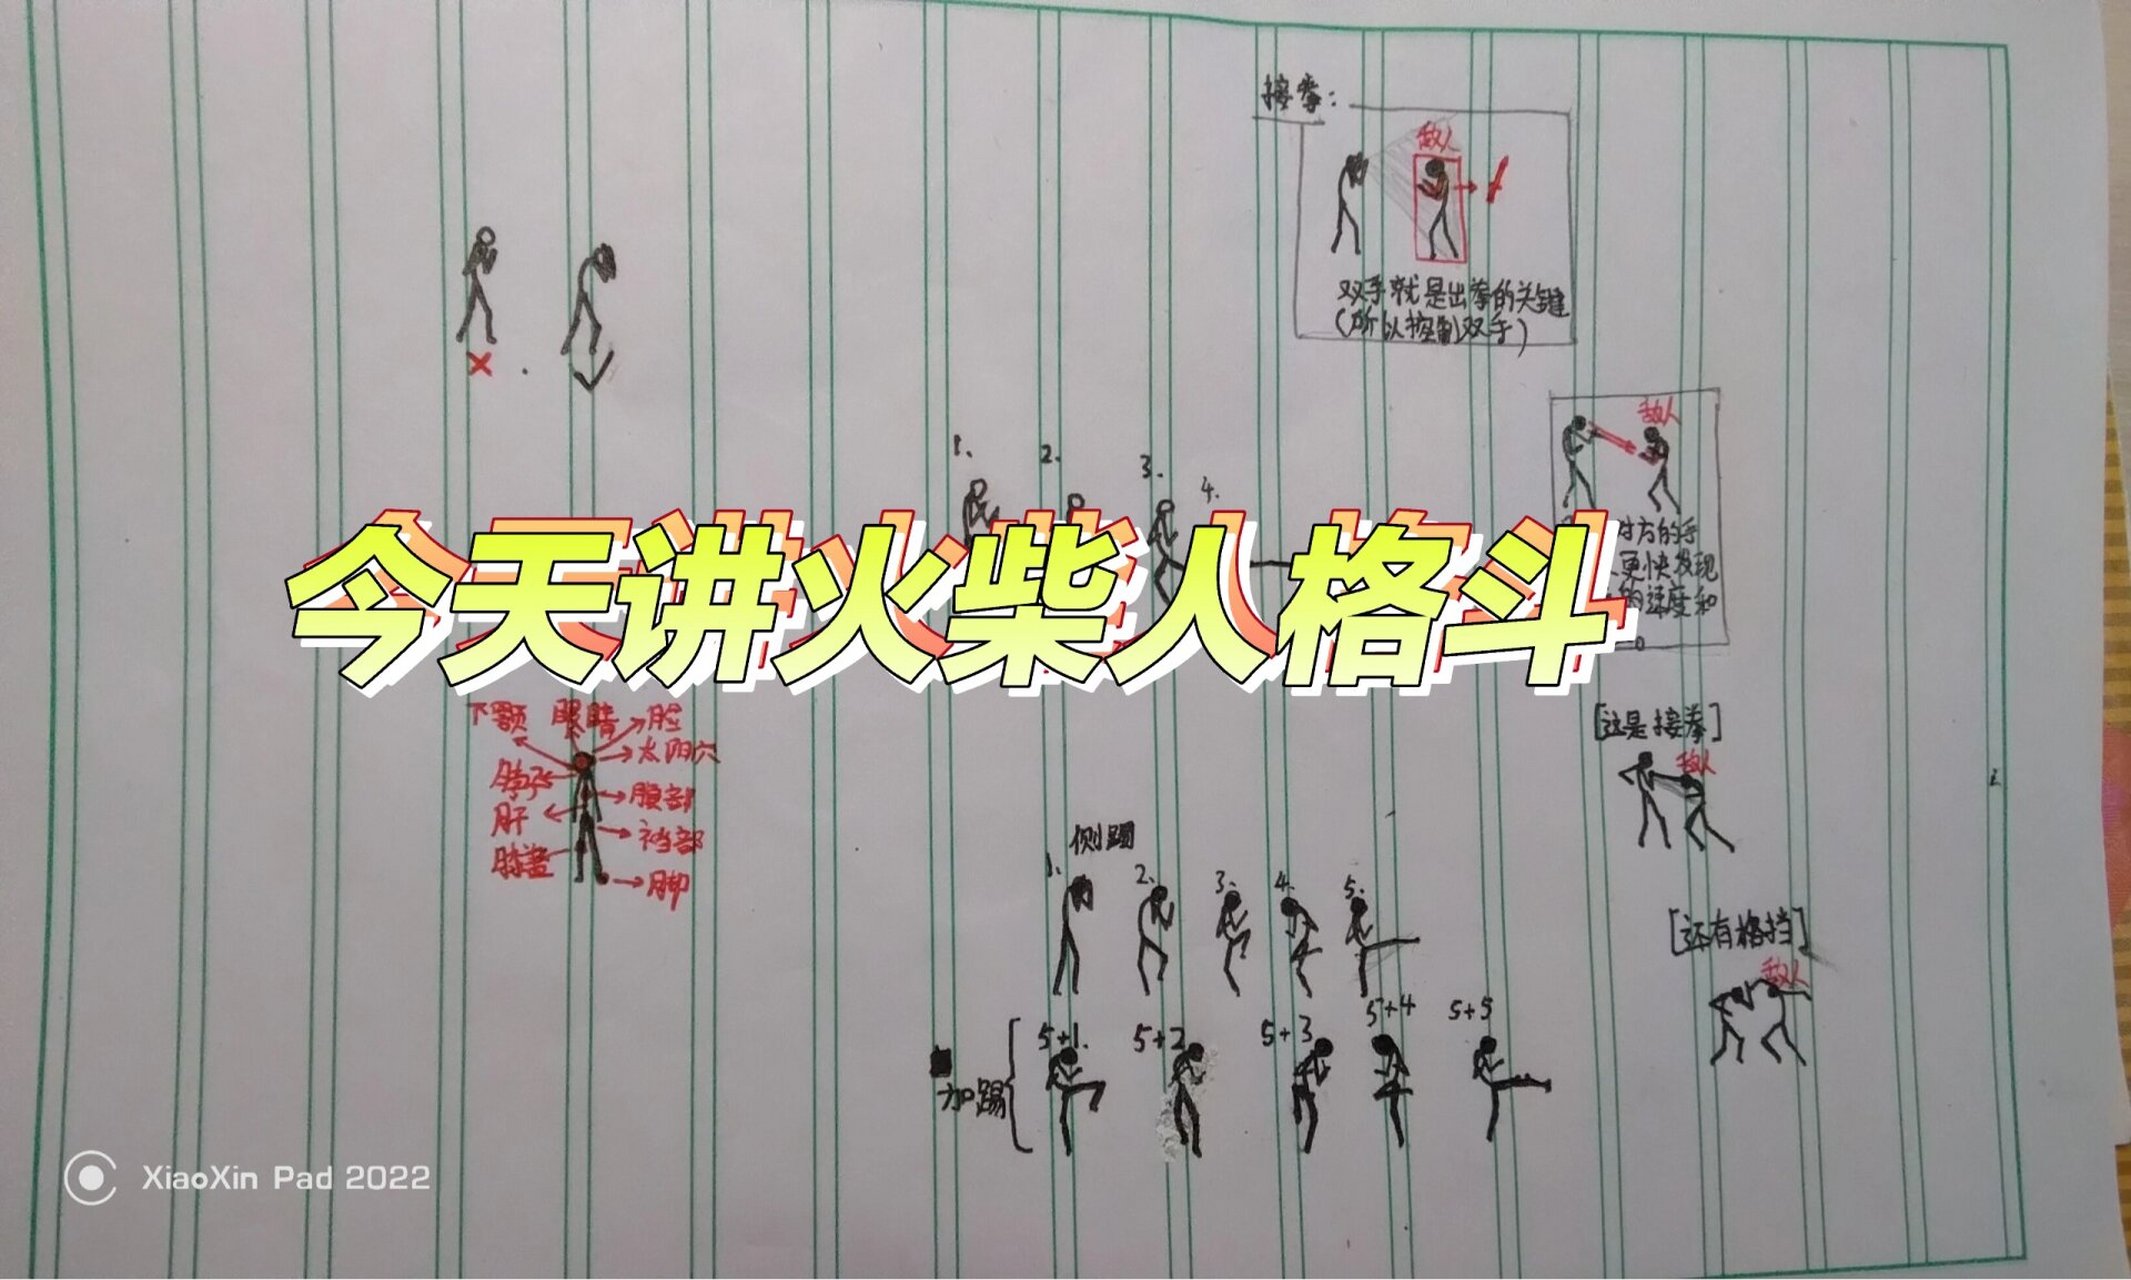 接拳：
敌人
双手就是出拳的关键
（所以控制双手）
1.
2.
3.
4.
敌人
对方的手
更快发现
的速度和
今天讲火柴人格斗
下颚
眼睛
脸
太阳穴
脖子
腹部
肝
裆部
膝盖
脚
[这是接拳]
敌人
侧踢
1.
2.
3.
4.
5.
[还有格挡]
敌人
加踢
5+1.
5+2
5+3
5+4
5+5
XiaoXin Pad 2022